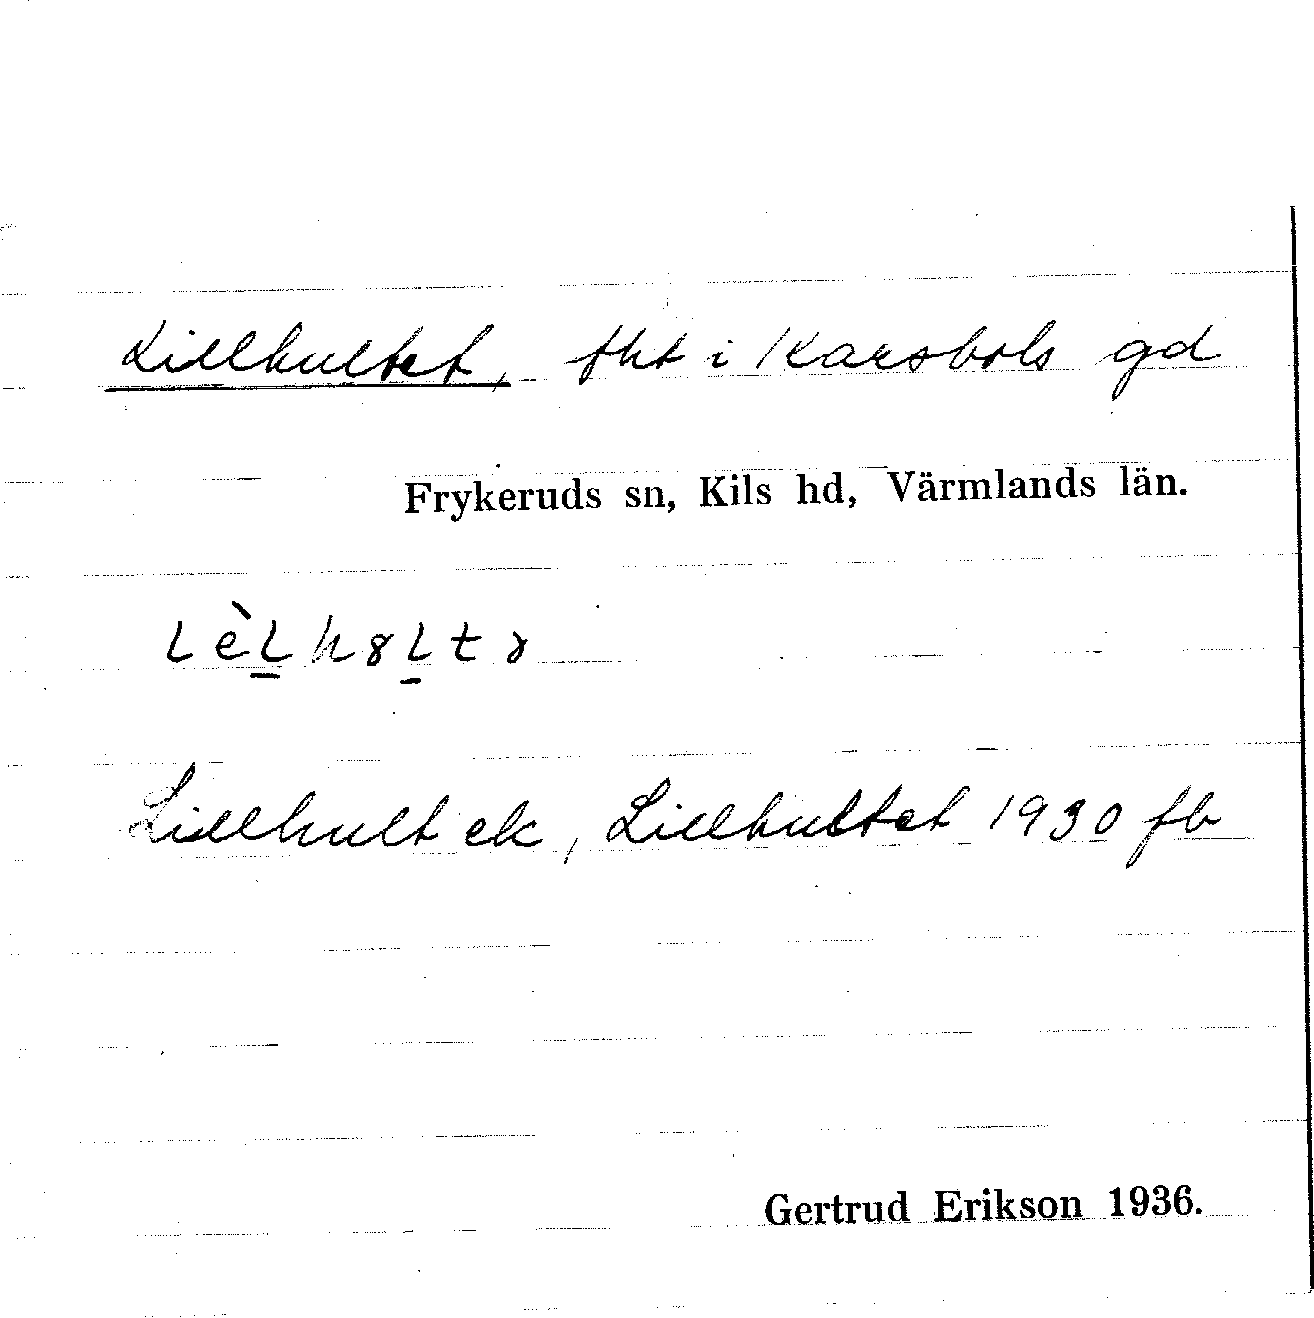 Lillhultet, tht i Karsbols gd
Frykeruds sn, Kils hd, Värmlands län.
Lillhult ek, Lillhultet 1930 fb
Gertrud Erikson 1936.